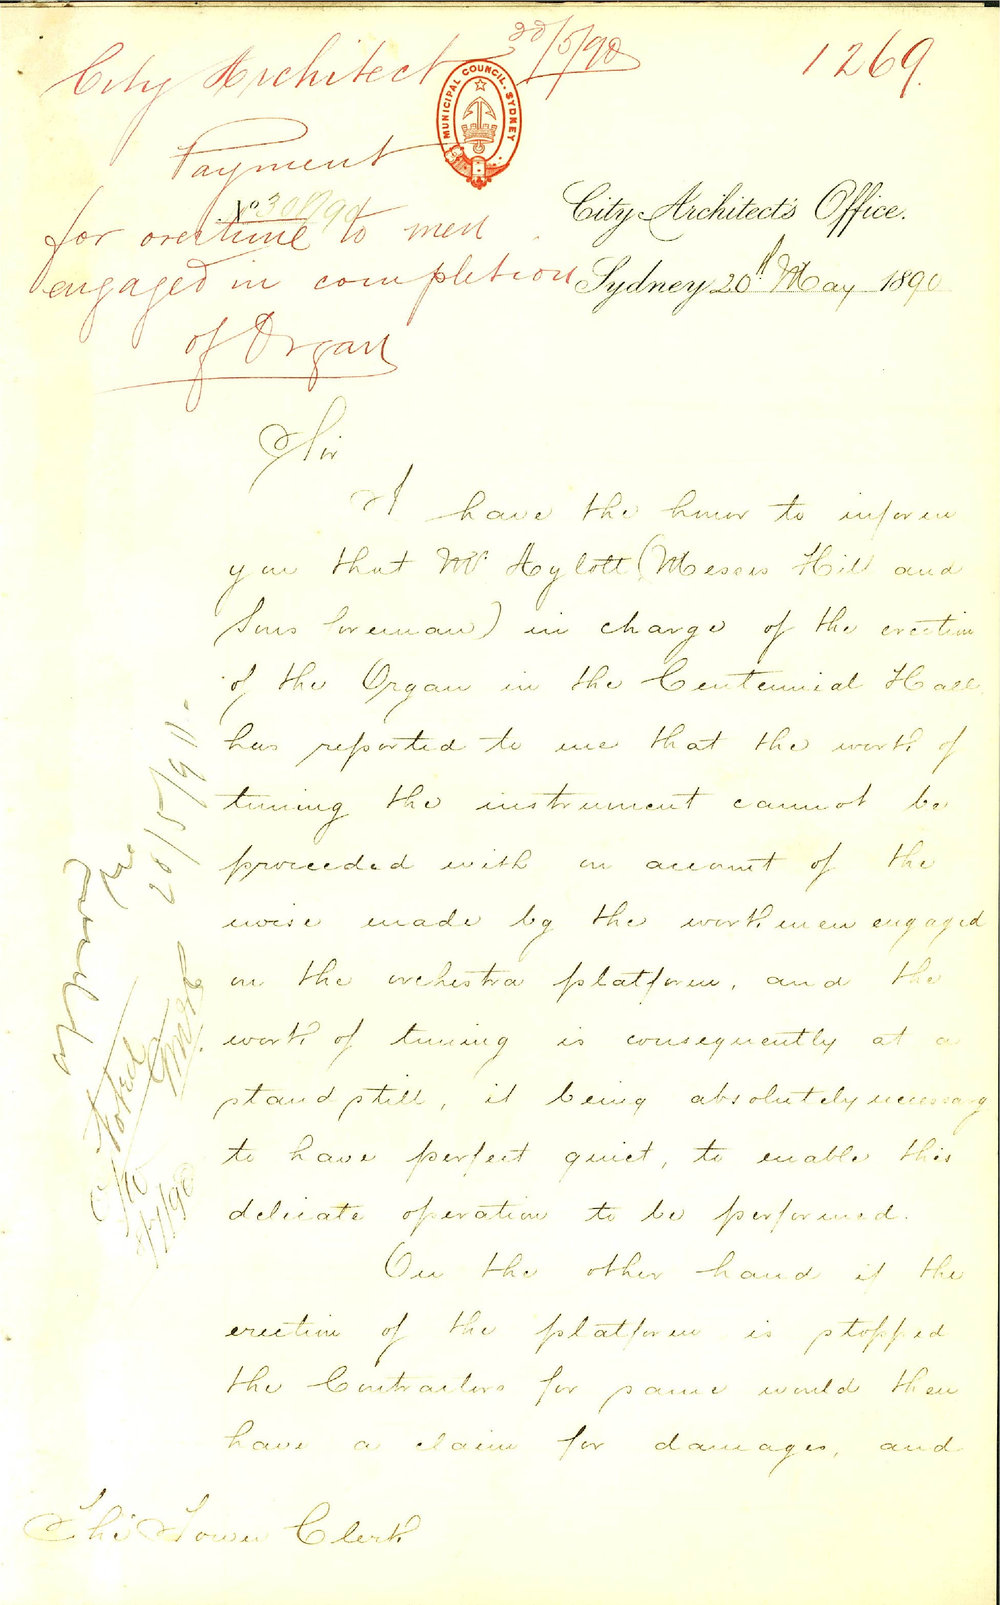 City Architect 20/5/90
1269
MUNICIPAL COUNCIL. SYDNEY
Payment
No 301/90
for overtime to men
engaged in completion
of Organ
City Architect's Office.
Sydney 20th May 1890
Sir
I have the honor to inform
you that Mr Aylott (Messrs Hill and
Sons foreman) in charge of the erection
of the Organ in the Centennial Hall
has reported to me that the work of
tuning the instrument cannot be
proceeded with on account of the
noise made by the workmen engaged
on the orchestra platform, and the
work of tuning is consequently at a
stand still, it being absolutely necessary
to have perfect quiet, to enable this
delicate operation to be performed.
On the other hand if the
erection of the platform is stopped
the Contractors for same would then
have a claim for damages, and
The Town Clerk
Approved
20/5/90
Noted